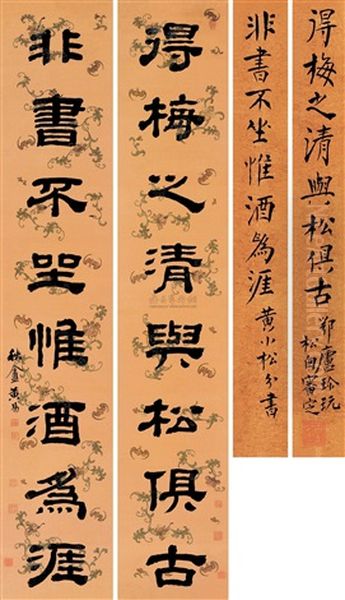 得梅之清與松俱古
非書不坐惟酒為涯
秋盦黃易
得梅之清與松俱古
松自審定
非書不坐惟酒為涯
黃小松分書